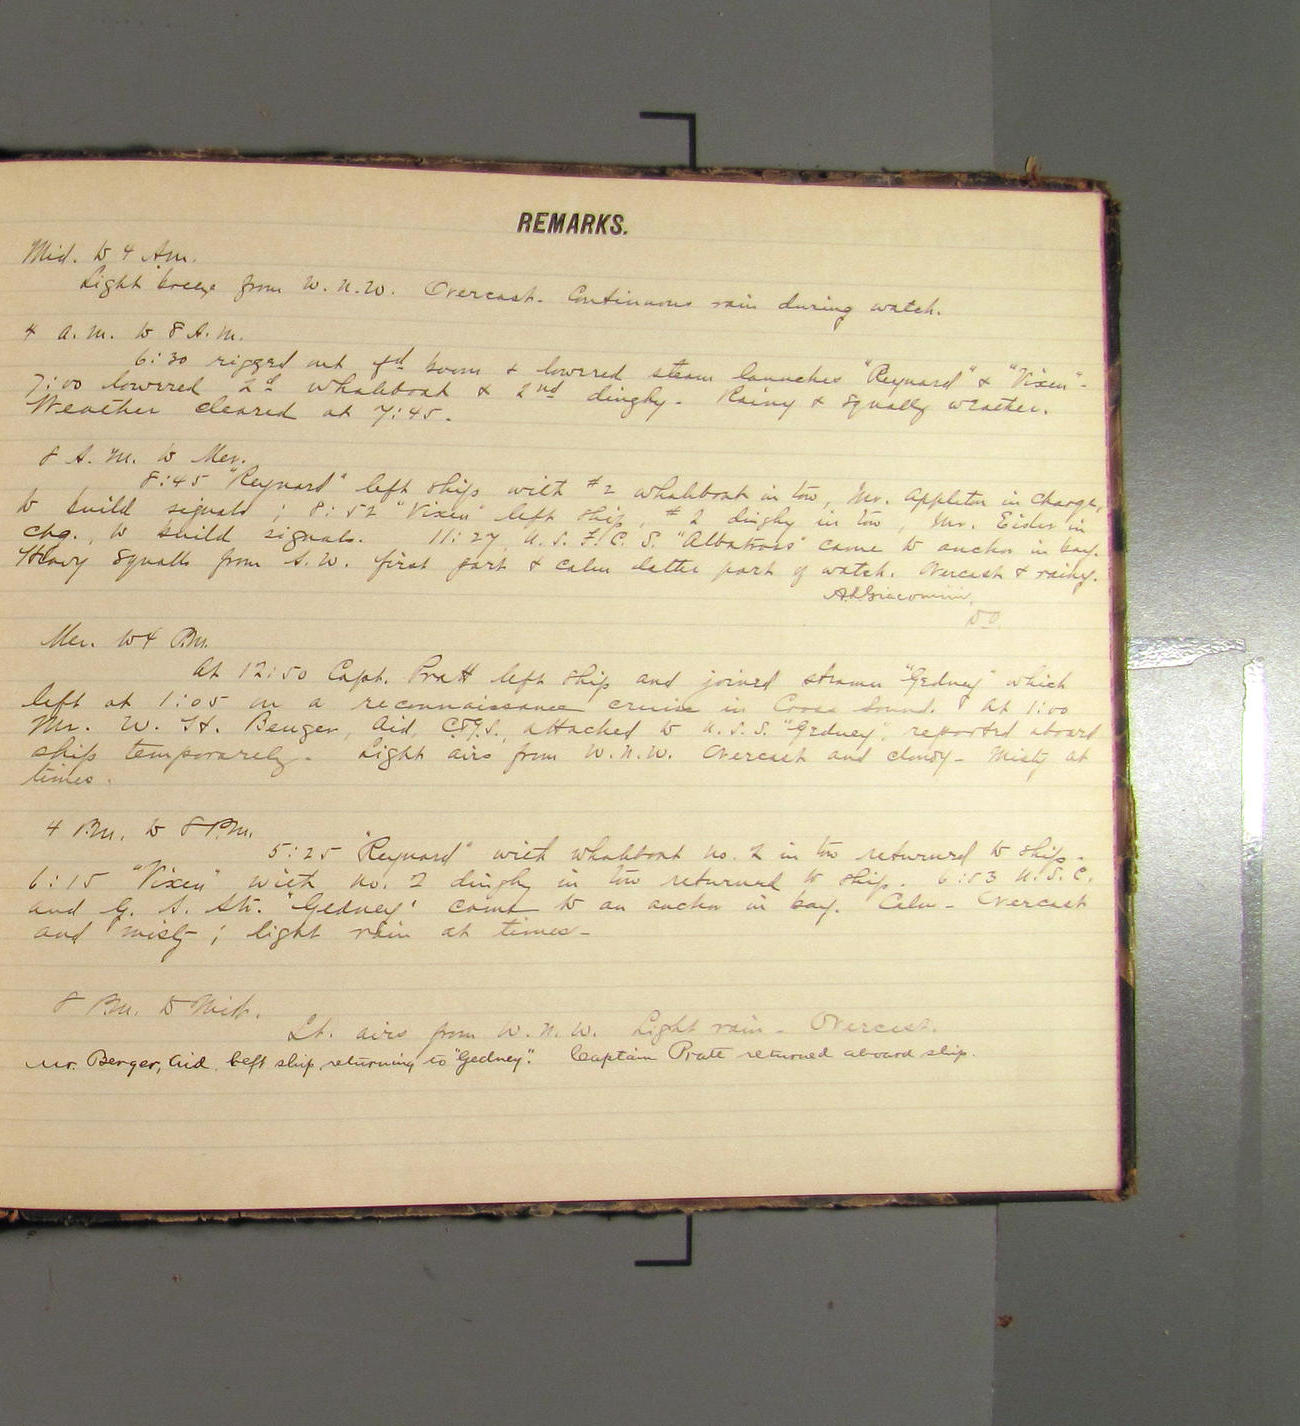 REMARKS.
Mid. to 4 Am.
Light breeze from W.N.W. Overcast. Continuous rain during watch.
4 a.m. to 8 A.M.
6:30 rigged out boom & lowered steam launches "Reynard" & "Vixen"-
7:00 lowered whaleboat & 2nd dinghy. Rainy & squally weather.
Weather cleared at 7:45.
8 A.M. to Mer.
8:45 "Reynard" left ship with #2 whaleboat in tow, Mr. Appleton in charge,
to build signals; 8:52 "Vixen" left ship, #2 dinghy in tow, Mr. in
chg., to build signals. 11:27, U.S.F.C.S. "Albatross" came to anchor in bay.
Heavy squalls from S.W. first part & calm latter part of watch. Overcast & rainy.
Mer. to 4 P.M.
At 12:50 Capt. Pratt left ship and joined steamer "Gedney" which
left at 1:05 on a reconnaissance cruise in Sound. At 1:00
Mr. W. H. Aid, C.&G.S., attached to U.S.S. "Gedney", reported aboard
ship temporarily. Light airs from W.N.W. Overcast and cloudy- Misty at
times.
4 P.M. to 8 P.M.
5:25 "Reynard" with whaleboat no. 2 in tow returned to ship.
6:15 "Vixen" with no. 2 dinghy in tow returned to ship. 6:53 U.S.C.
and G. S. Str. "Gedney" came to an anchor in bay. Calm - Overcast
and misty; light rain at times-
8 P.M. to Mid.
Lt. airs from W.N.W. Light rain - Overcast.
Mr. Berger, Aid, left ship, returning to "Gedney". Captain Pratt returned aboard ship.